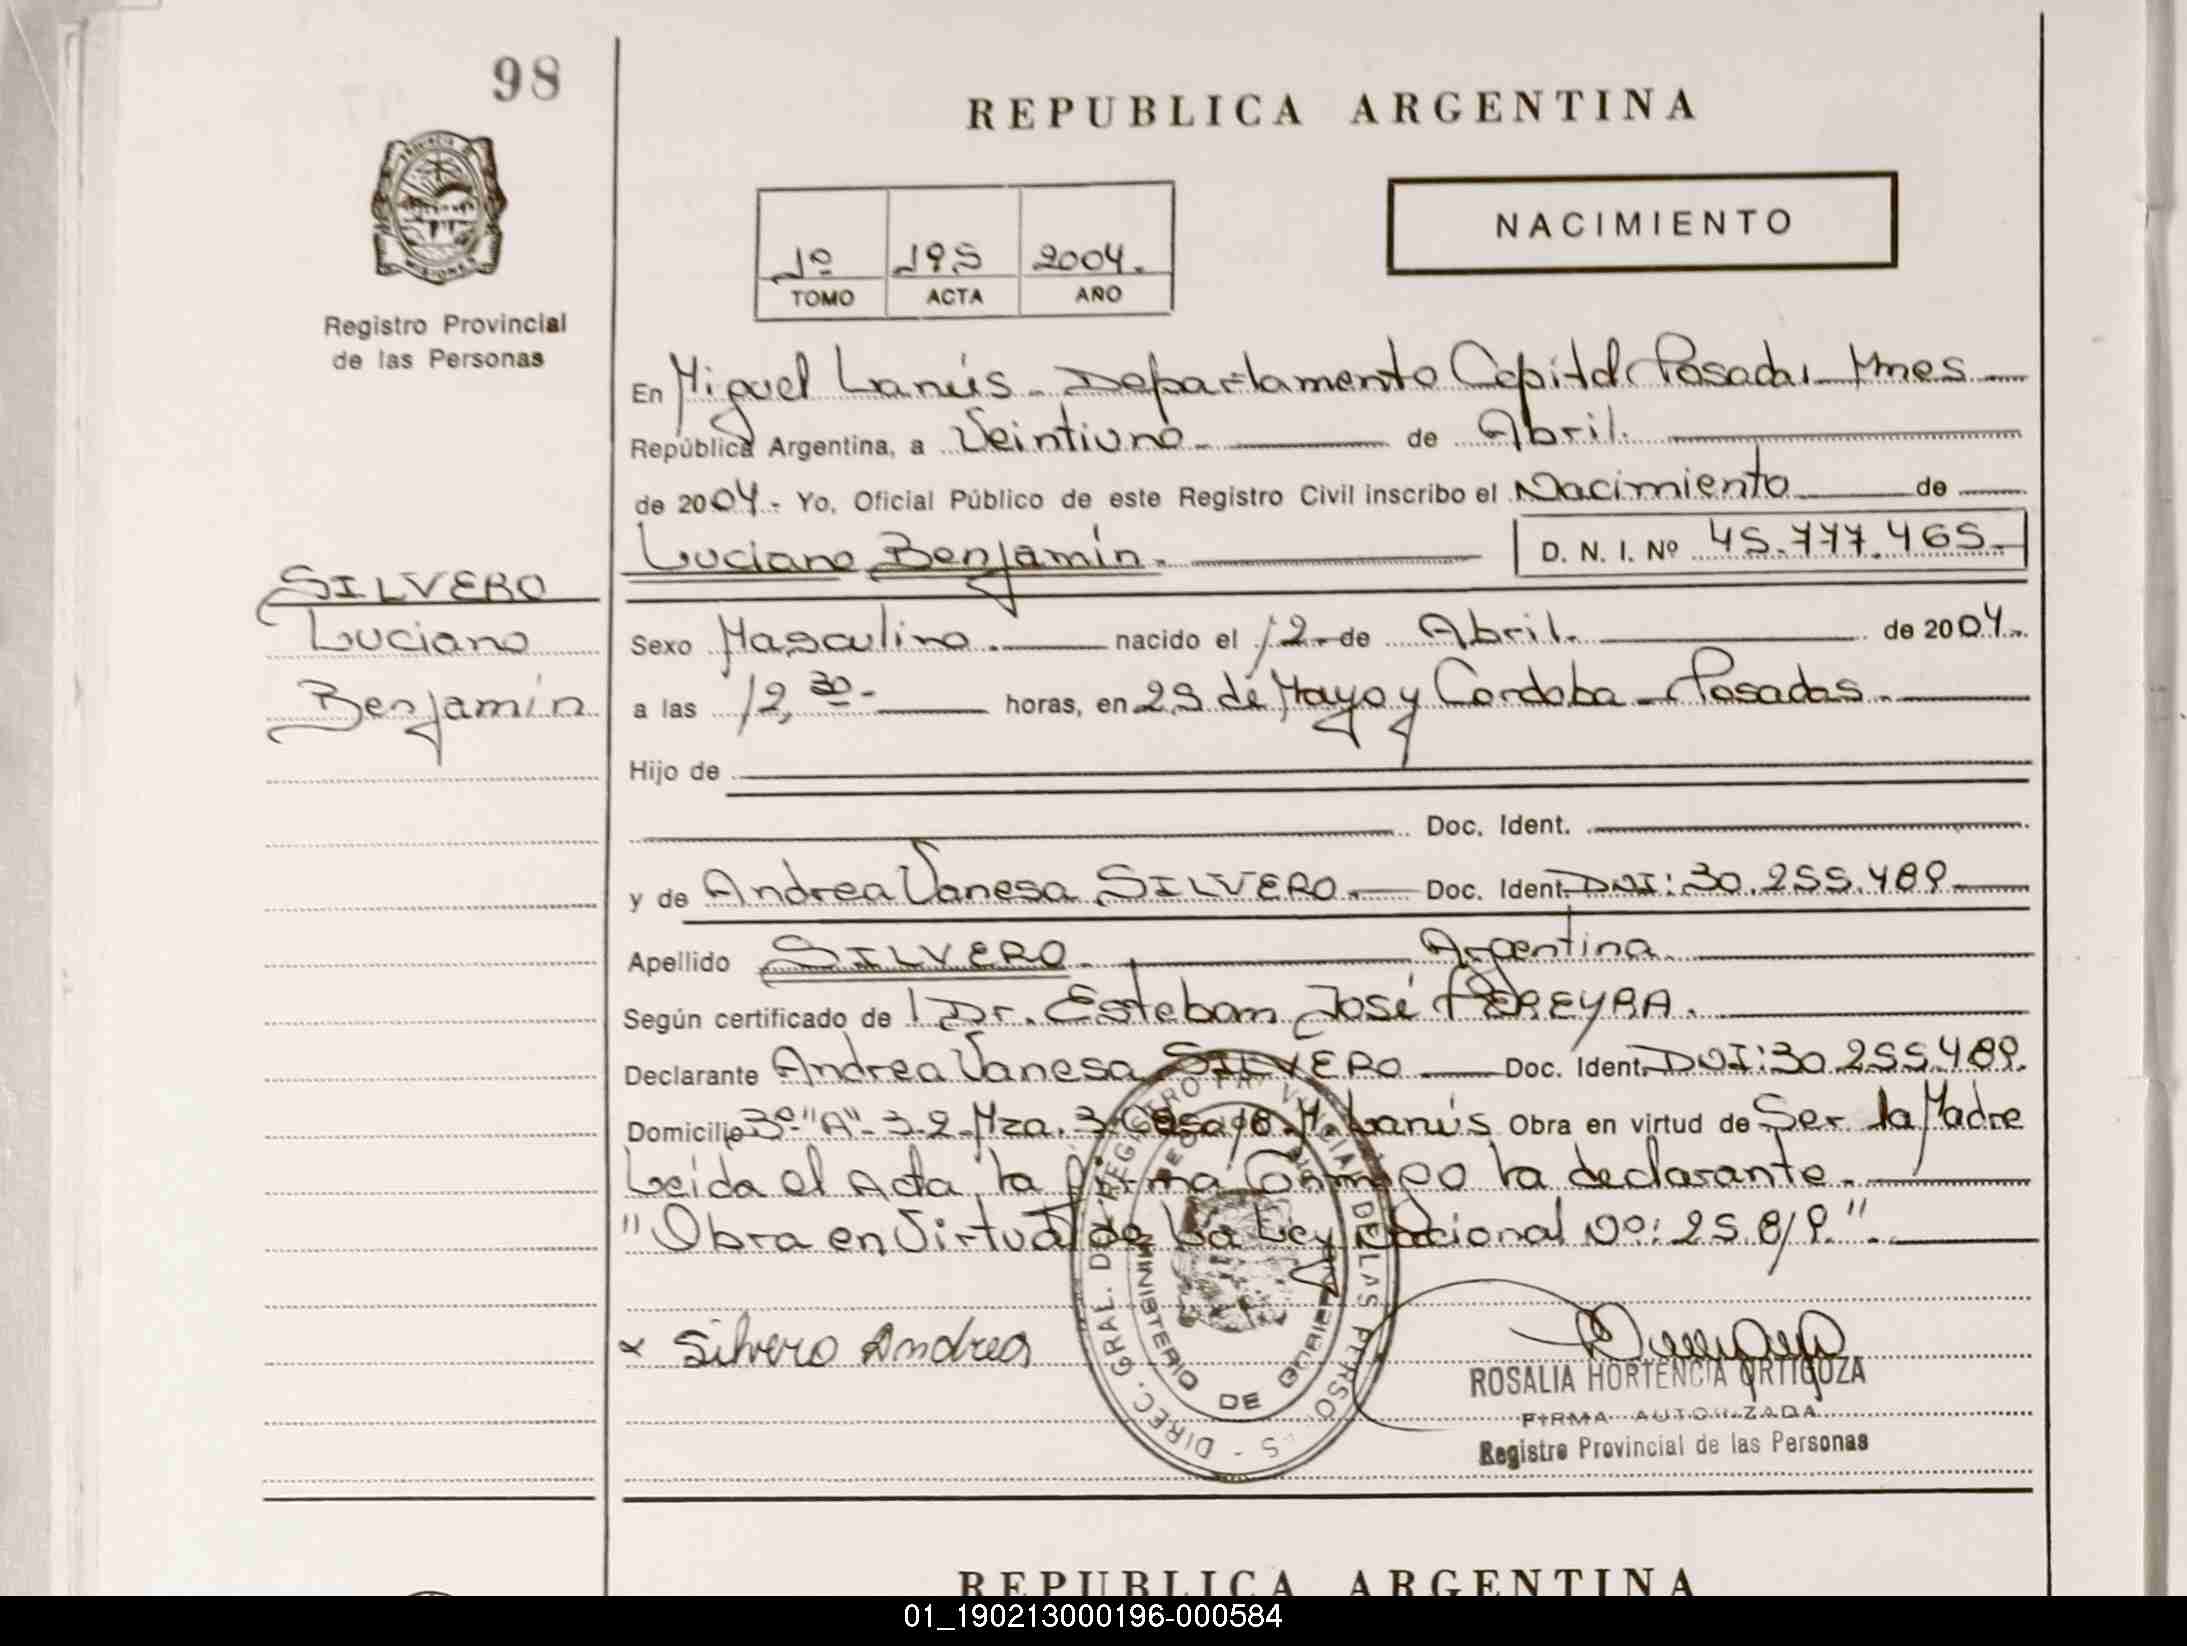 98
REPUBLICA ARGENTINA
NACIMIENTO
1º 195 2004.
TOMO ACTA AÑO
PROVINCIA DE MISIONES
Registro Provincial
de las Personas
En Miguel Lanús - Departamento Capital - Posadas Mnes
República Argentina, a Veintiuno de Abril.
de 2004.- Yo, Oficial Público de este Registro Civil inscribo el Nacimiento de
Luciano Benjamín. D. N. I. Nº 45.777.465.
SILVERO
Luciano
Benjamín
Sexo Masculino. nacido el 12 de Abril. de 2004.
a las 12,30- horas, en 25 de Mayo y Cordoba - Posadas.
Hijo de
Doc. Ident.
y de Andrea Vanesa SILVERO. Doc. Ident. DNI: 30.255.489
Apellido SILVERO. Argentina.
Según certificado de Dr. Esteban José PEREYRA.
Declarante Andrea Vanesa SILVERO Doc. Ident. DNI: 30.255.489.
Domicilio 3º "A" - 32 - Mza. 3 Casa 18. M. Lanús Obra en virtud de Ser la Madre
Leída el Acta, la firma Conmigo la declarante.
"Obra en Virtud de La Ley Nacional Nº: 25.819."
x Silvero Andrea
DIREC. GRAL. DEL REGISTRO PROVINCIAL DE LAS PERSONAS
MINISTERIO DE GOBIERNO
ROSALIA HORTENCIA ORTIGOZA
FIRMA AUTORIZADA
Registro Provincial de las Personas
REPUBLICA ARGENTINA
01_190213000196-000584